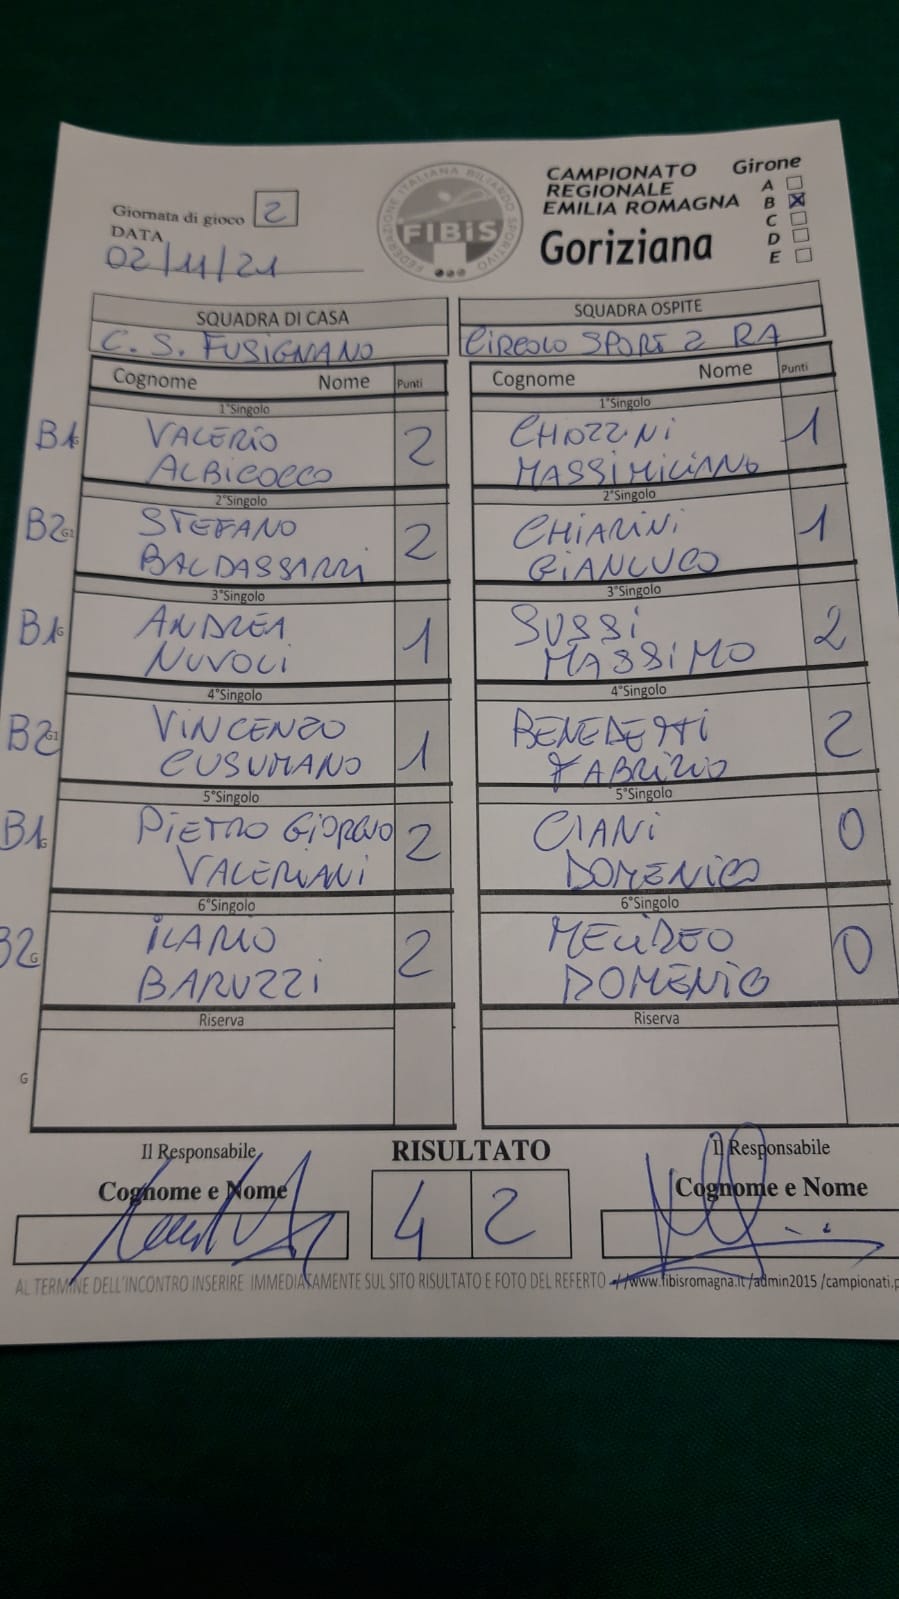 Giornata di gioco 2
DATA
02/11/21
FEDERAZIONE ITALIANA BILIARDO SPORTIVO
FIBiS
CAMPIONATO
REGIONALE
EMILIA ROMAGNA
Goriziana
Girone
A
B X
C
D
E
SQUADRA DI CASA
C. S. FUSIGNANO
SQUADRA OSPITE
CIRCOLO SPORT 2 RA
Cognome Nome Punti
Cognome Nome Punti
1°Singolo
1°Singolo
B1G VALERIO
ALBICOCCO 2
CHIOZZINI
MASSIMILIANO 1
2°Singolo
2°Singolo
B2 G1 STEFANO
BALDASSARRI 2
CHIARINI
GIANLUCO 1
3°Singolo
3°Singolo
B1G ANDREA
NUVOLI 1
SUSSI
MASSIMO 2
4°Singolo
4°Singolo
B2 G1 VINCENZO
CUSUMANO 1
BENEDETTI
FABRIZIO 2
5°Singolo
5°Singolo
B1G PIETRO GIORGIO
VALERIANI 2
CIANI
DOMENICO 0
6°Singolo
6°Singolo
B2 G ILARIO
BARUZZI 2
DOMENICO 0
Riserva
Riserva
G
Il Responsabile
Cognome e Nome
RISULTATO
4 2
Il Responsabile
Cognome e Nome
AL TERMINE DELL'INCONTRO INSERIRE IMMEDIATAMENTE SUL SITO RISULTATO E FOTO DEL REFERTO //www.fibisromagna.it/admin2015/campionati.p